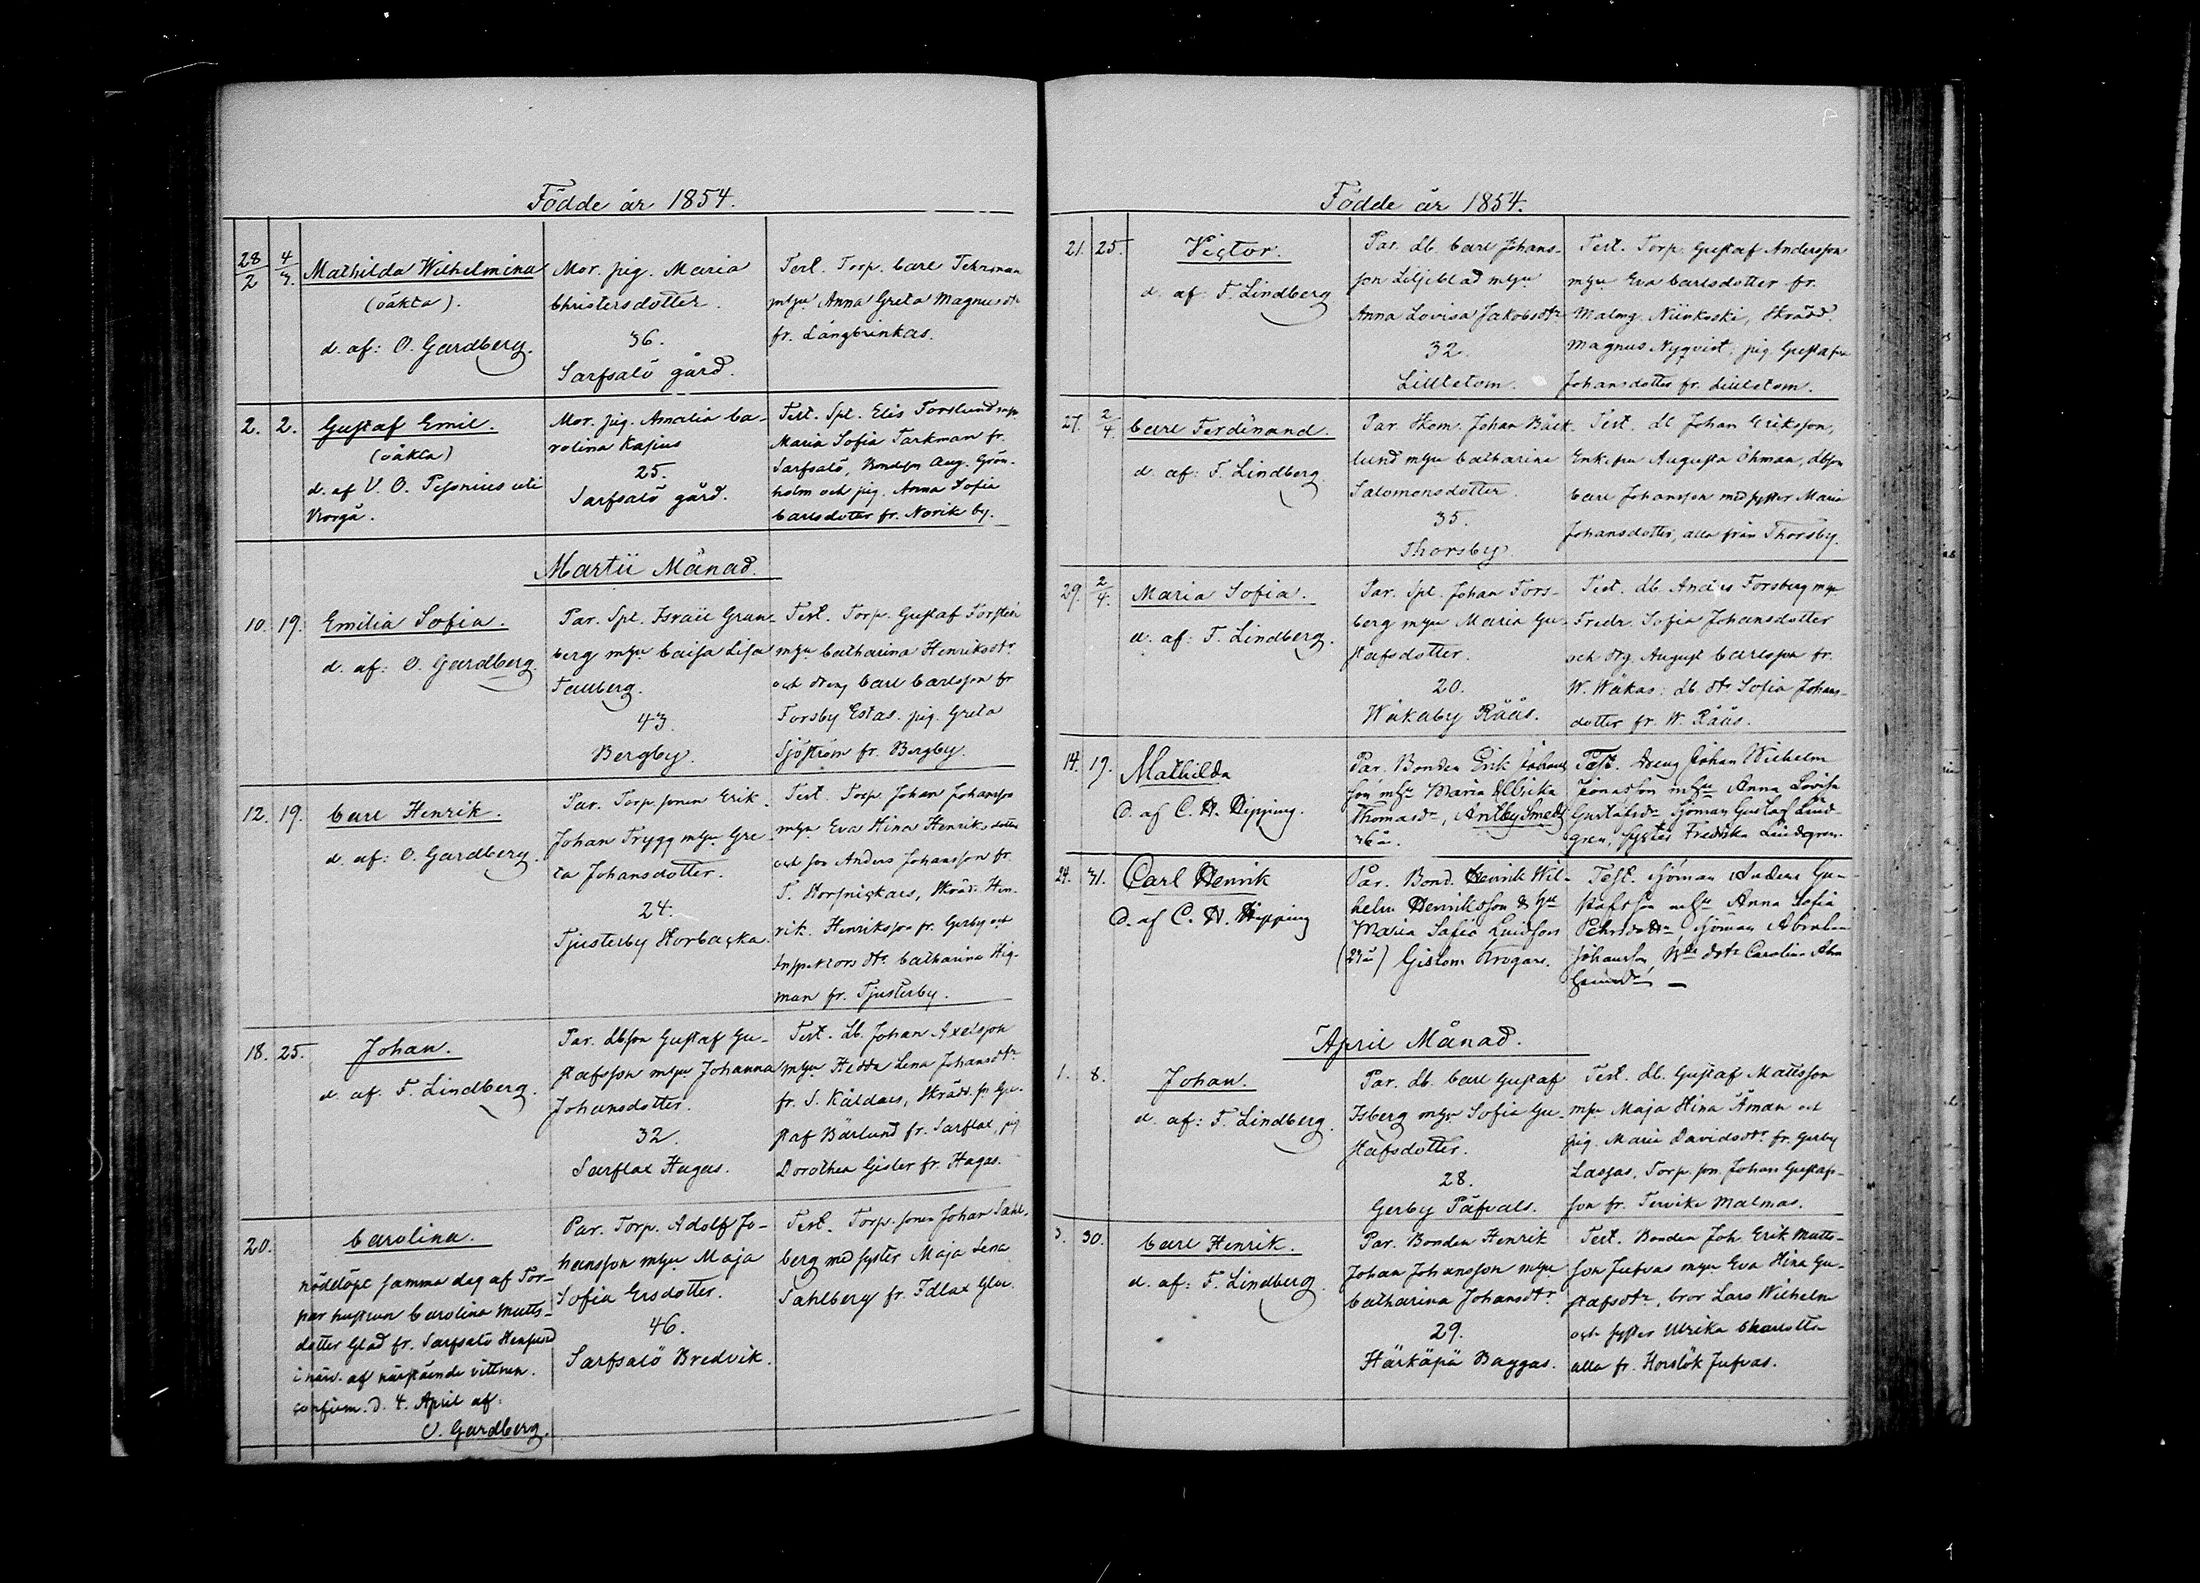 Födde år 1854.
28/2 4/3. Mathilda Wilhelmina
(oäkta).
d. af: O. Gardberg.
Mor. pig. Maria
Christersdotter.
36.
Sarfsalö gård.
Test. Torp. Carl Tehrman
mhu Anna Greta Magnusdr
fr. Långbrinkas.
2. 2. Gustaf Emil.
(oäkta)
d. af V. O. Pesonius uti
Borgå.
Mor. pig. Amalia Ca-
rolina Kajus
25.
Sarfsalö gård.
Test. Spl. Elis Forslund mhu
Maria Sofia Tarkman fr.
Sarfsalö, Bondson Aug. Grön-
holm och pig. Anna Sofia
Carlsdoter fr. Norik by.
Martii Månad.
10. 19. Emilia Sofia.
d. af: O. Gardberg.
Par. Spl. Israel Gran-
berg mhu Caisa Lisa
Tallberg.
43
Bergby.
Test. Torp. Gustaf Torstén
mhu Catharina Henriksdr
och dreng Carl Carlsson fr
Forsby Estas. pig. Greta
Sjöström fr. Bergby.
12. 19. Carl Henrik.
d. af: O. Gardberg.
Par. Torp. sonen Erik
Johan Trygg mhu Gre-
ta Johansdotter.
24.
Tjusterby Korbacka.
Test. Torp Johan Johansson
mhu Eva Stina Henriksdotter
och son Anders Johansson fr.
T. Korsnickars, Skräd. Hen-
rik Henriksson fr. Gerby och
Inspektors dr Catharina Hig-
man fr. Tjusterby.
18. 25. Johan.
d. af. F. Lindberg.
Par. dbson Gustaf Gu-
stafsson mhu Johanna
Johansdotter.
32.
Sarflax Hagas.
Test. Db. Johan Axelsson
mhu Hedda Lena Johansdr
fr. S. Käldars, Skrädd. Gu-
staf Bärlund fr. Sarflax, pig
Dorothea Gisler fr. Hagas.
20. Carolina.
nöddöpt samma dag af Tor-
par hustrun Carolina Matts-
dotter Glad fr. Sarfsalö
i närv. af närstående vittnen.
confirm. d. 4. April af:
O. Gardberg.
Par. Torp. Adolf Jo-
hansson mhu Maja
Sofia Ersdotter.
46.
Sarfsalö Bredvik.
Test. Torp. sonen Johan Sahl-
berg med syster Maja Lena
Sahlberg fr. Idlax
Födde år 1854.
21. 25. Victor.
d. af F. Lindberg
Par. db. Carl Johans-
son Liljeblad mhu
Anna Lovisa Jakobsdr
32.
Lilletom.
Test. Torp. Gustaf Andersson
mhu Eva Carlsdotter fr.
Malmg. Niinkoski, Skrädd.
Magnus Nyqvist, pig. Gustafva
Johansdotter fr. Lilletom.
27. 2/4. Carl Ferdinand.
d. af: F. Lindberg.
Par. Johan Bäck-
lund mhu Catharina
Salomonsdotter.
35.
Thorsby.
Test. db Johan Eriksson,
Enkefru Augusta Öhman, dbson
Carl Johansson med syster Maria
Johansdotter, alla från Thorsby.
29. 2/4. Maria Sofia.
d. af: F. Lindberg.
Par. Spl. Johan Fors-
berg mhu Maria Gu-
stafsdotter.
20.
Wåkaby Råås.
Test. db. Anders Forsberg mhu
Fredr. Sofia Johansdotter
och drg. August Carlsson fr.
W. Wåkas: db. dr Sofia Johans-
dotter fr. W. Råås.
14. 19. Mathilda
D. af C. H. Hipping.
Par. Bonden Erik Johans
son mhu Maria Ulrika
Thomasdr, Antby Smeds
36 å.
Test. Dreng Johan Wilhelm
Jonasson mhu Anna Lovisa
Gustafsdr Sjöman Gustaf Lind-
gren, syster Fredrika Lindgren.
24. 31. Carl Henrik
D. af C. H. Hipping
Par. Bond. Henrik Wil-
helm Henriksson & hu
Maria Sofia
Gislom Krogars.
Test. Sjöman Anders Gu-
stafsson mhu Anna Sofia
Pehrsdotr, Sjöman Abraham
Johansson, dotr Carolina
April Månad.
1. 8. Johan.
d. af: F. Lindberg.
Par. db. Carl Gustaf
Isberg mhu Sofia Gu-
stafsdotter.
28.
Gerby Påfvals.
Test. db. Gustaf Mattsson
mhu Maja Stina Åman och
pig. Maria Davidsdr. fr. Gerby
Lassas. Torp. son. Johan Gustafs-
son fr. Tervike Malmas.
3. 30. Carl Henrik.
d. af: F. Lindberg
Par. Bonden Henrik
Johan Johansson mhu
Catharina Johansdr
29.
Härkäpä Baggas.
Test. Bonden Joh. Erik Matts-
son Jufvas mhu Eva Stina Gu-
stafsdr, bror Lars Wilhelm
och syster Ulrika Charlotta
alla fr. Horslök Jufvas.